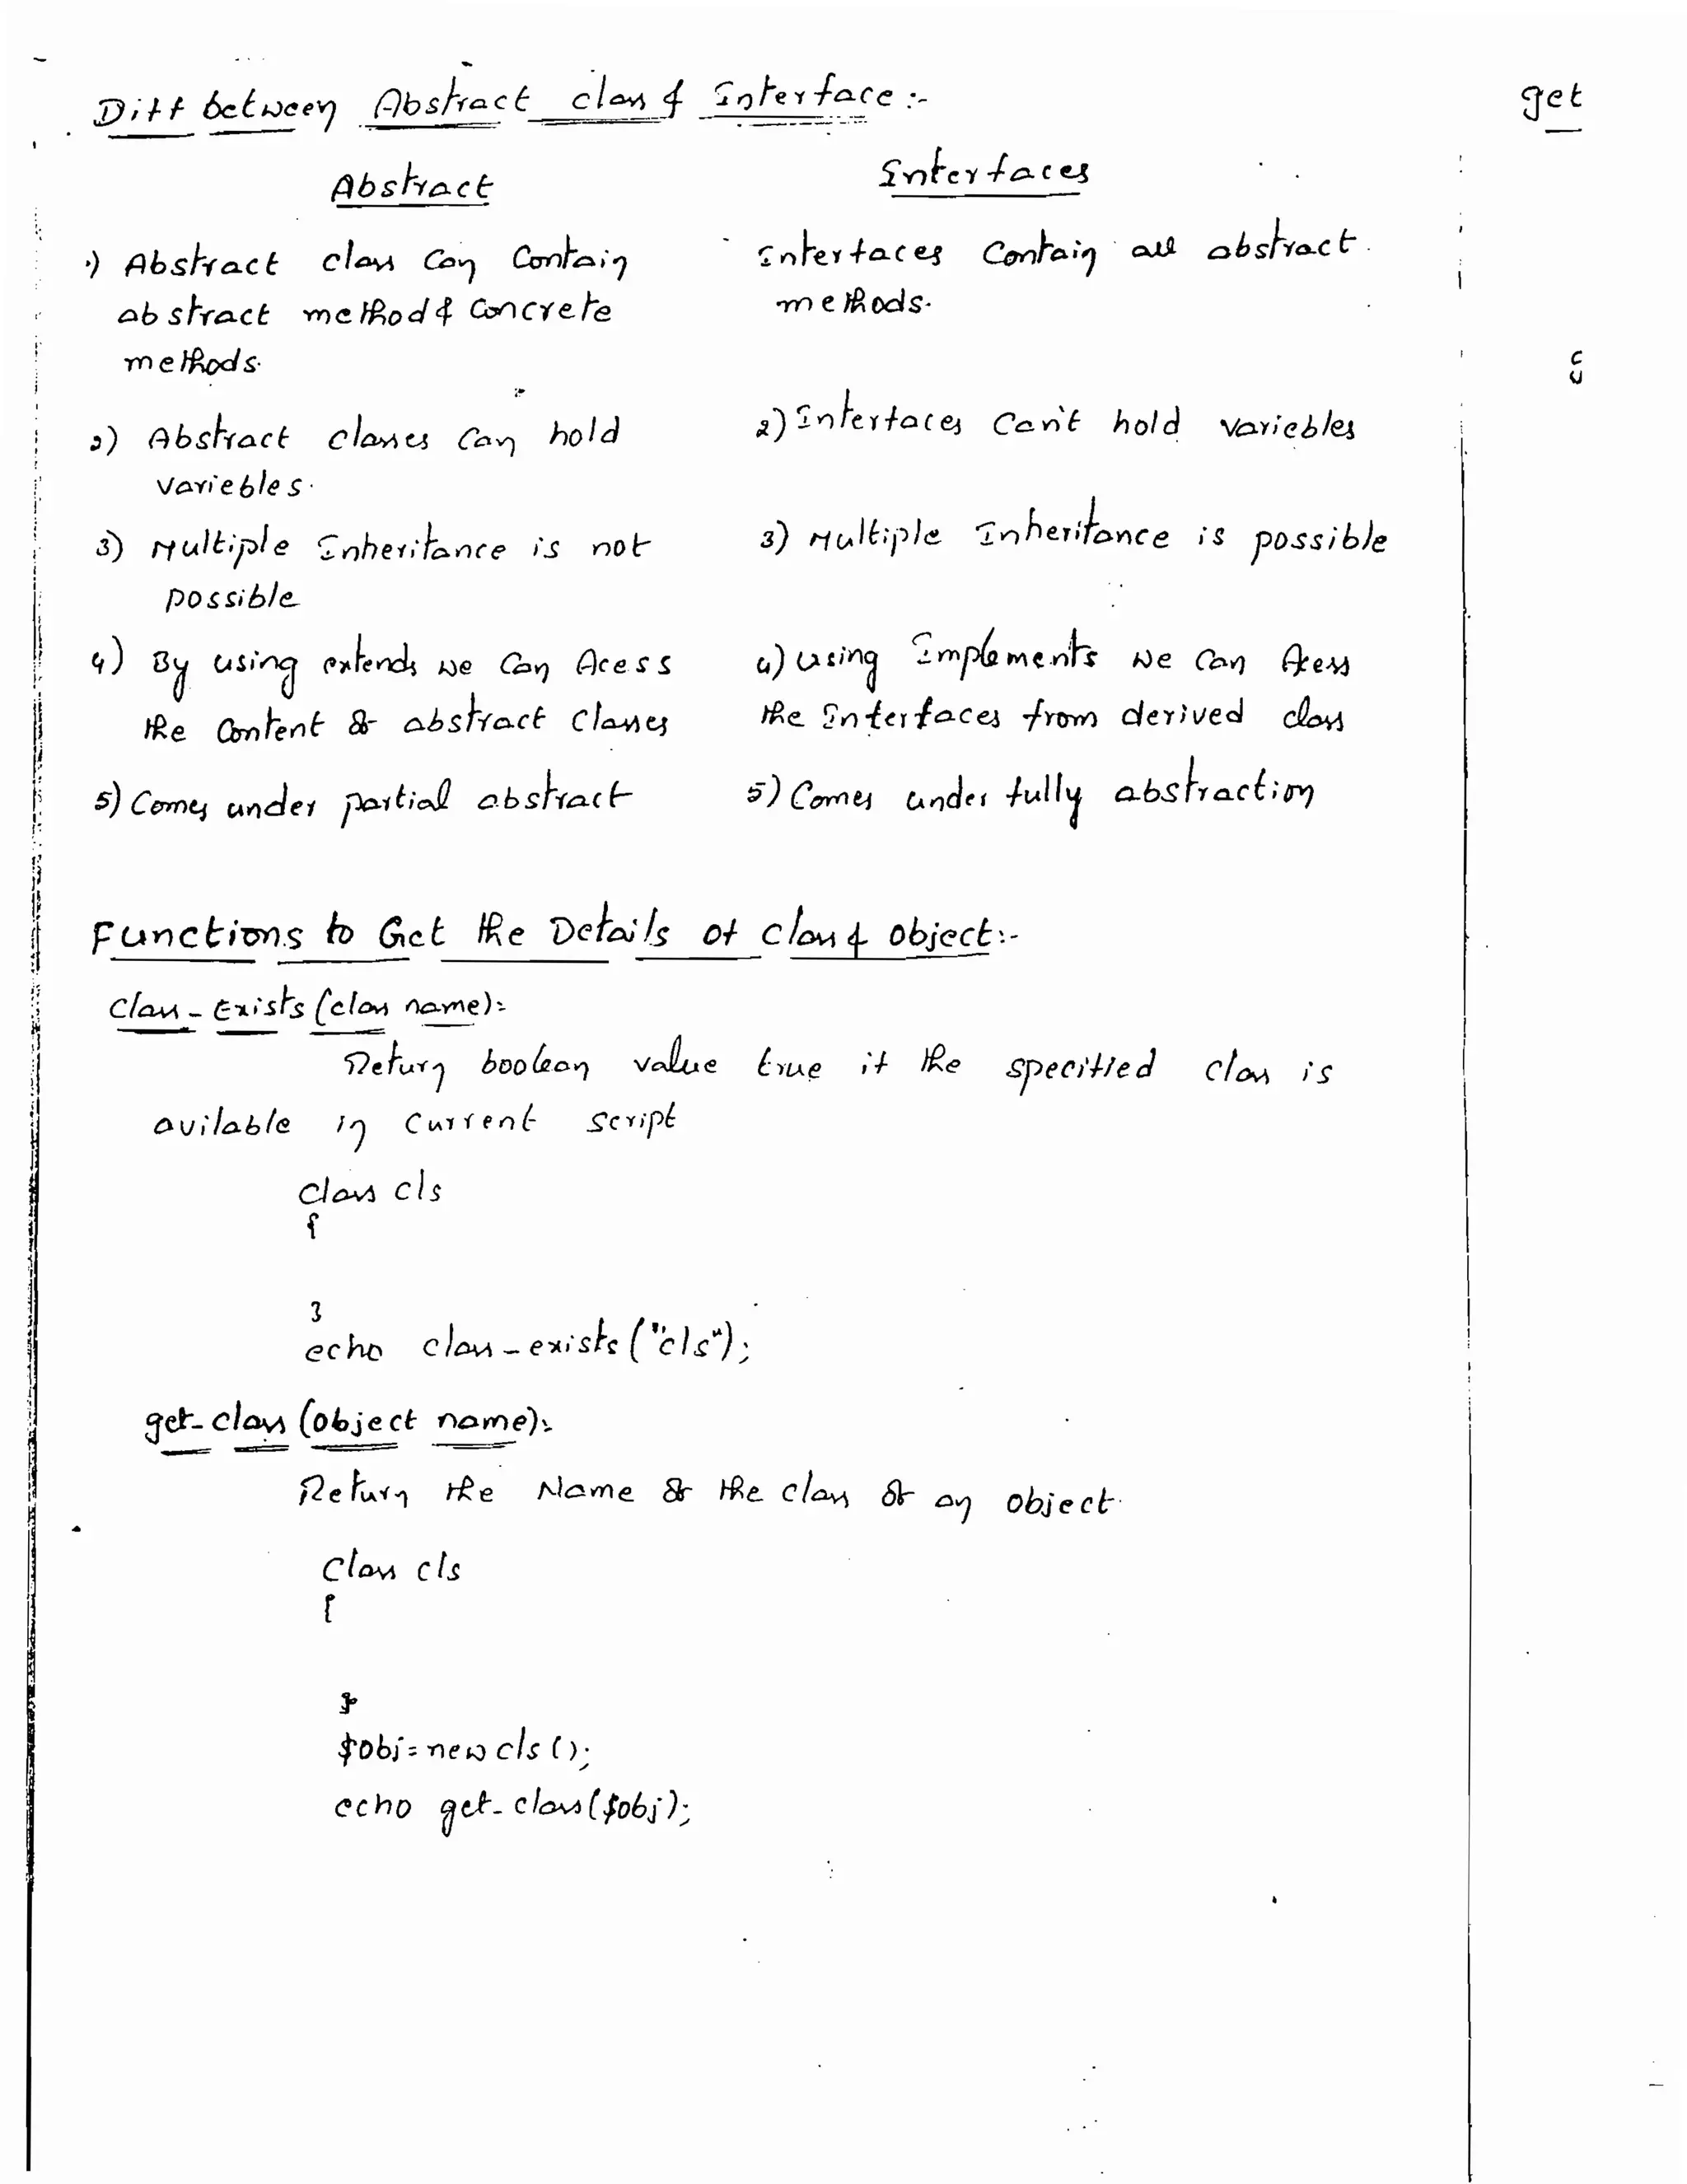 Diff between Abstract class & Interface :-
Abstract
1) Abstract class Can Contain
abstract method & Concrete
methods.
2) Abstract classes Can hold
variebles.
3) Multiple Inheritance is not
possible
4) By using extends we Can Acess
the Content of abstract Classes
5) Comes under partial abstract
Interfaces
Interfaces Contain all abstract
methods.
2) Interfaces Can't hold variebles
3) Multiple Inheritance is possible
4) Using Implements we Can Acess
the Interfaces from derived class
5) Comes under fully abstraction
Functions to Get the Details of class & object:-
Class_Exists (class name):-
Return boolean value true if the specified class is
avilable in Current Script
Class cls
{
}
echo class_exists ("cls");
get_class (object name):-
Return the Name of the class of an object.
Class cls
{
}
$obj = new cls ();
echo get_class($obj);
get